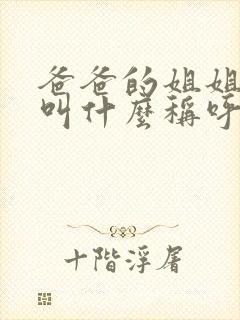 爸爸的姐姐
叫什麼稱呼
十階浮屠